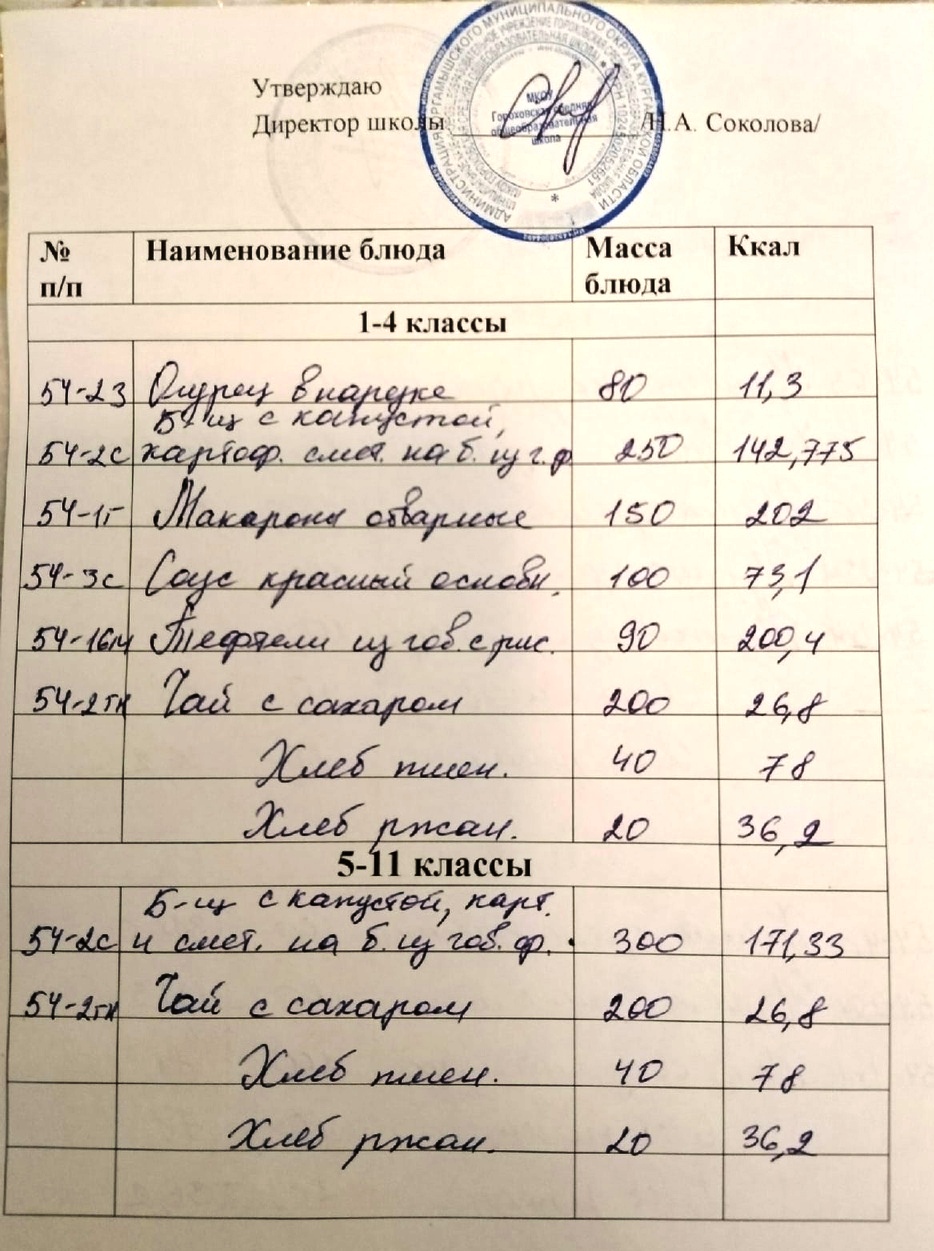 Утверждаю
Директор школы /Н.А. Соколова/
МКОУ
Гороховская средняя
общеобразовательная
школа
№ п/п Наименование блюда Масса блюда Ккал
1-4 классы
54-2з Огурец в нарезке 80 11,3
Б-щ с капустой,
54-2с картоф. смет. на б. из г. ф 250 142,775
54-1г Макароны отварные 150 202
54-3с Соус красный основн. 100 73,1
54-16м Тефтели из гов. с рис. 90 200,4
54-2гн Чай с сахаром 200 26,8
Хлеб пшен. 40 78
Хлеб ржан. 20 36,2
5-11 классы
Б-щ с капустой, карт.
54-2с и смет. на б. из гов. ф. 300 171,33
54-2гн Чай с сахаром 200 26,8
Хлеб пшен. 40 78
Хлеб ржан. 20 36,2